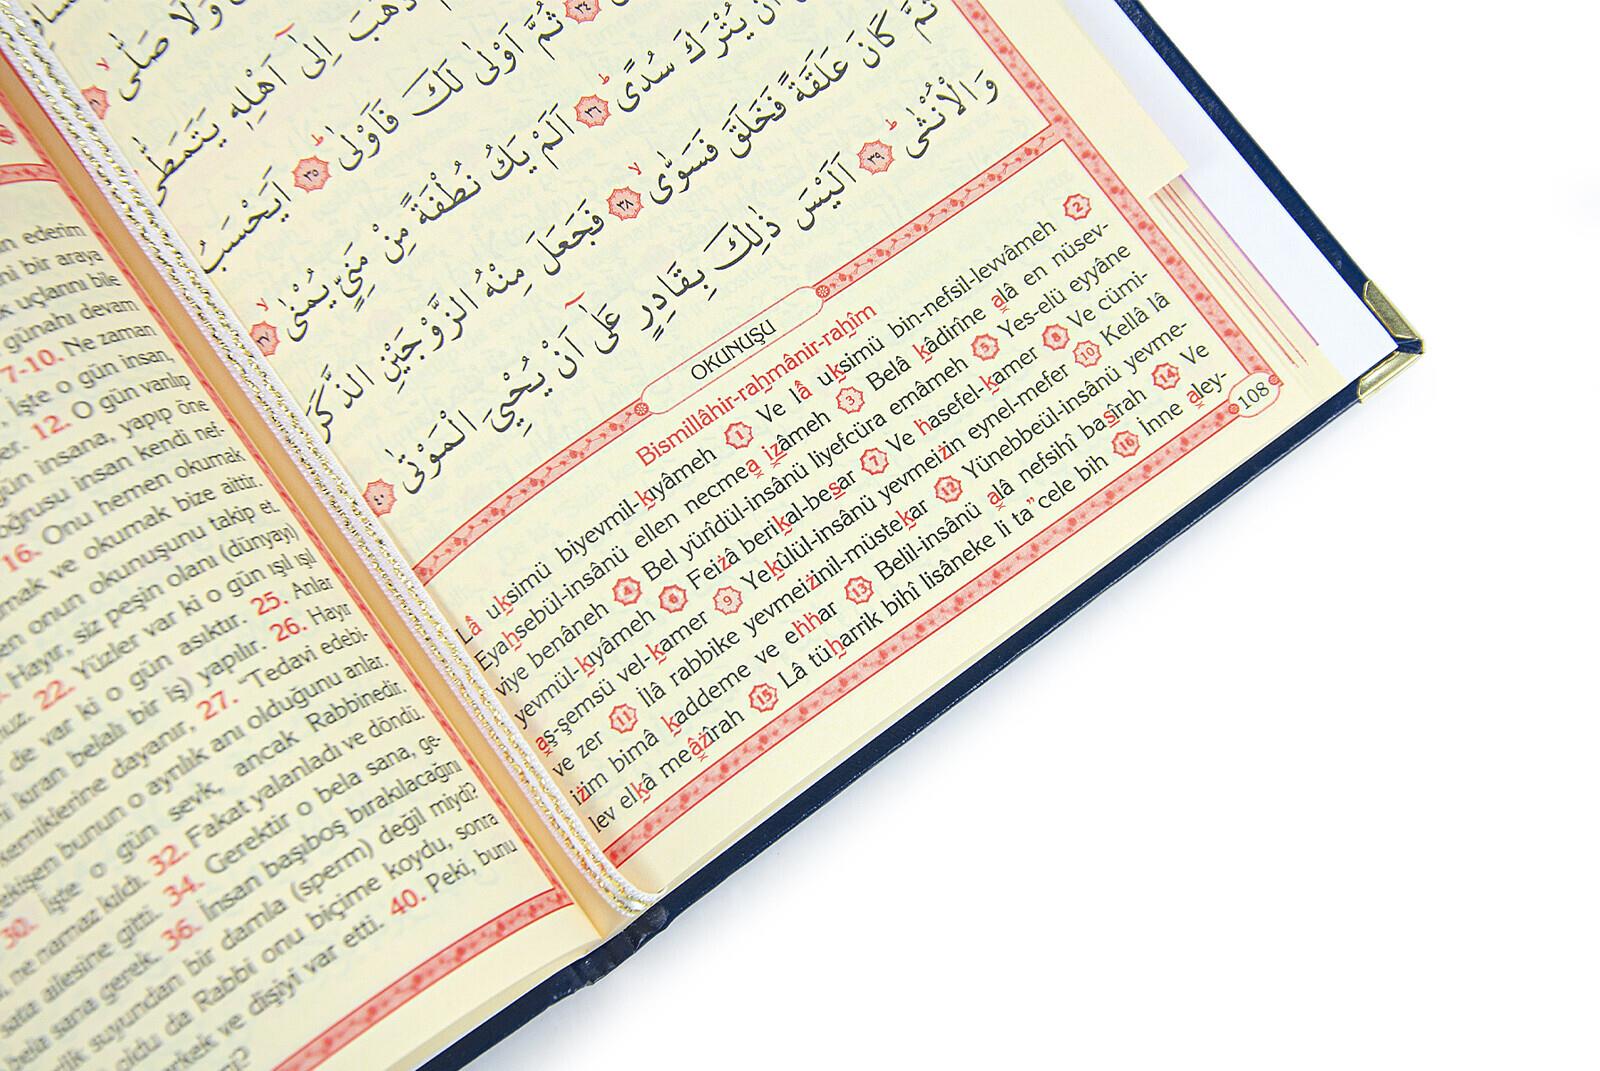 ن ederim
ni bir araya
k uçlarını bile
günahı devam
7-10. Ne zaman
İşte o gün insan,
er. 12. O gün varılıp
gün insana, yapıp öne
oğrusu insan kendi nef-
16. Onu hemen okumak
mak ve okumak bize aittir.
en onun okunuşunu takip et.
Hayır, siz peşin olanı (dünyayı)
nuz. 22. Yüzler var ki o gün ışıl ışıl
de var ki o gün asıktır. 25. Anlar
ni kıran belalı bir iş) yapılır. 26. Hayır
kemiklerine dayanır, 27. "Tedavi edebi-
ekişen bunun o ayrılık anı olduğunu anlar.
30. İşte o gün sevk, ancak Rabbinedir.
ne namaz kıldı. 32. Fakat yalanladı ve döndü.
sata ailesine gitti. 34. Gerektir o bela sana, ge-
bela sana gerek. 36. İnsan başıboş bırakılacağını
suyundan bir damla (sperm) değil miydi?
oldu da Rabbi onu biçime koydu, sonra
erkek ve dişiyi var etti. 40. Peki, bunu
وَلَا صَلّٰى ٣١
ذَهَبَ اِلٰٓى اَهْلِه۪ يَتَمَطّٰى
٣٤ ثُمَّ اَوْلٰى لَكَ فَاَوْلٰى ٣٥ اَيَحْسَبُ
اَنْ يُتْرَكَ سُدًى ٣٦ اَلَمْ يَكُ نُطْفَةً مِنْ مَنِيٍّ يُمْنٰى ٣٧
ثُمَّ كَانَ عَلَقَةً فَخَلَقَ فَسَوّٰى ٣٨ فَجَعَلَ مِنْهُ الزَّوْجَيْنِ الذَّكَرَ
وَالْاُنْثٰى ٣٩ اَلَيْسَ ذٰلِكَ بِقَادِرٍ عَلٰٓى اَنْ يُحْيِيَ الْمَوْتٰى ٤٠
OKUNUŞU
Bismillâhir-rahmânir-rahîm
Lâ uksimü biyevmil-kıyâmeh 1 Ve lâ uksimü bin-nefsil-levvâmeh 2
Eyahsebül-insânü ellen necmea izâmeh 3 Belâ kâdirîne alâ en nüsev-
viye benâneh 4 Bel yürîdül-insânü liyefcüra emâmeh 5 Yes-elü eyyâne
yevmül-kıyâmeh 6 Feizâ berikal-besar 7 Ve hasefel-kamer 8 Ve cümi-
aş-şemsü vel-kamer 9 Yekûlül-insânü yevmeizin eynel-mefer 10 Kellâ lâ
ve zer 11 İlâ rabbike yevmeizinil-müstekar 12 Yünebbeül-insânü yevme-
izim bimâ kaddeme ve ehhar 13 Belil-insânü alâ nefsihî basîrah 14 Ve
lev elkâ meâzîrah 15 Lâ tüharrik bihî lisâneke li ta"cele bih 16 İnne aley-
108